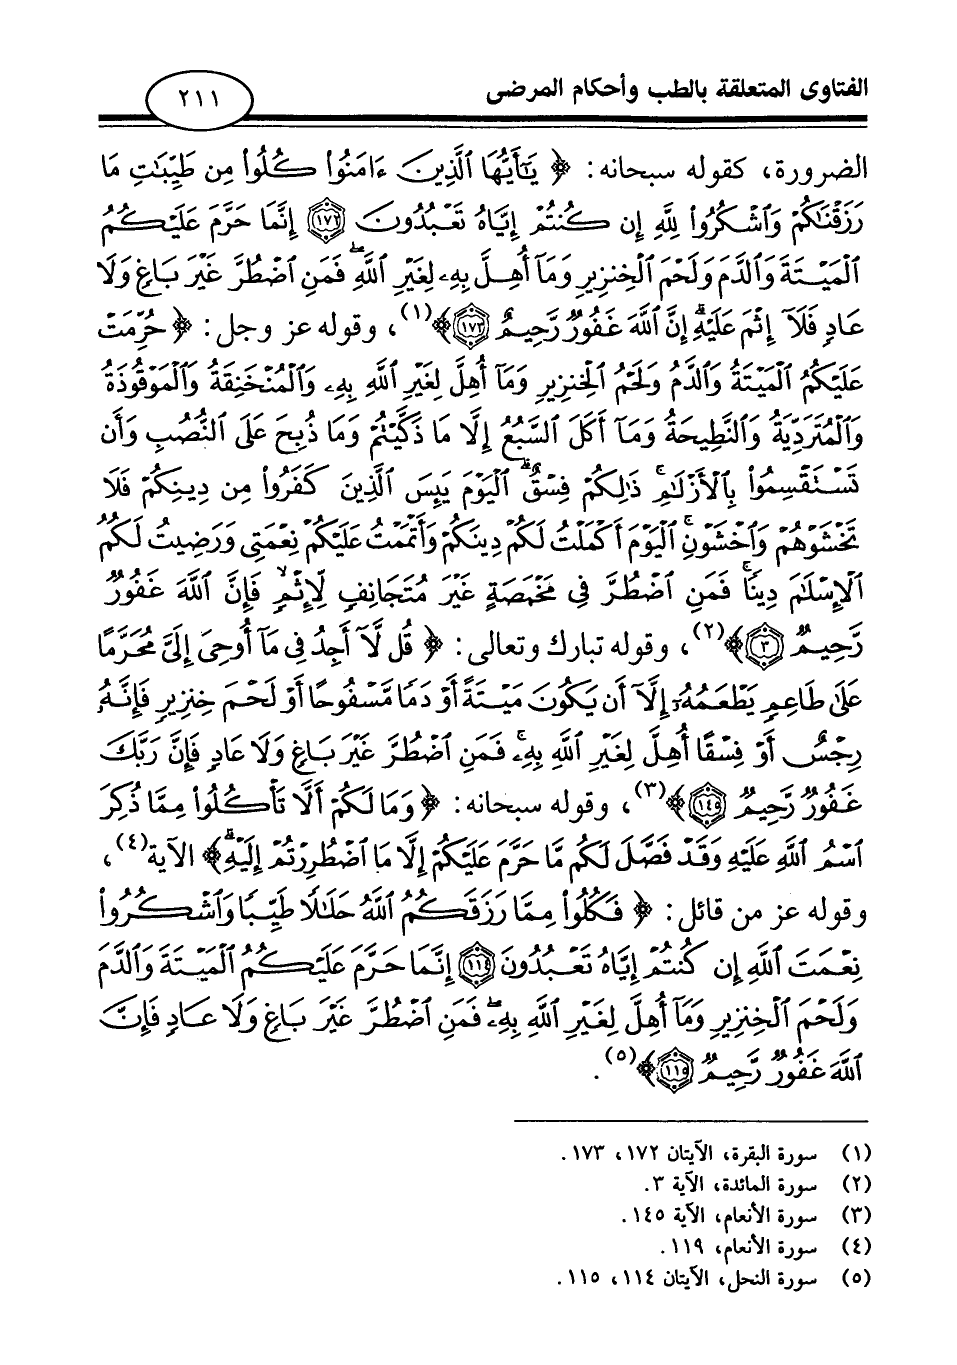 الفتاوى المتعلقة بالطب وأحكام المرضى
٢١١
الضرورة، كقوله سبحانه: ﴿ يَٰٓأَيُّهَا ٱلَّذِينَ ءَامَنُوا۟ كُلُوا۟ مِن طَيِّبَٰتِ مَا
رَزَقْنَٰكُمْ وَٱشْكُرُوا۟ لِلَّهِ إِن كُنتُمْ إِيَّاهُ تَعْبُدُونَ ١٧٢ إِنَّمَا حَرَّمَ عَلَيْكُمُ
ٱلْمَيْتَةَ وَٱلدَّمَ وَلَحْمَ ٱلْخِنزِيرِ وَمَآ أُهِلَّ بِهِۦ لِغَيْرِ ٱللَّهِ ۖ فَمَنِ ٱضْطُرَّ غَيْرَ بَاغٍ وَلَا
عَادٍ فَلَآ إِثْمَ عَلَيْهِ ۚ إِنَّ ٱللَّهَ غَفُورٌ رَّحِيمٌ ١٧٣ ﴾(١)، وقوله عز وجل: ﴿ حُرِّمَتْ
عَلَيْكُمُ ٱلْمَيْتَةُ وَٱلدَّمُ وَلَحْمُ ٱلْخِنزِيرِ وَمَآ أُهِلَّ لِغَيْرِ ٱللَّهِ بِهِۦ وَٱلْمُنْخَنِقَةُ وَٱلْمَوْقُوذَةُ
وَٱلْمُتَرَدِّيَةُ وَٱلنَّطِيحَةُ وَمَآ أَكَلَ ٱلسَّبُعُ إِلَّا مَا ذَكَّيْتُمْ وَمَا ذُبِحَ عَلَى ٱلنُّصُبِ وَأَن
تَسْتَقْسِمُوا۟ بِٱلْأَزْلَٰمِ ۚ ذَٰلِكُمْ فِسْقٌ ۗ ٱلْيَوْمَ يَئِسَ ٱلَّذِينَ كَفَرُوا۟ مِن دِينِكُمْ فَلَا
تَخْشَوْهُمْ وَٱخْشَوْنِ ۚ ٱلْيَوْمَ أَكْمَلْتُ لَكُمْ دِينَكُمْ وَأَتْمَمْتُ عَلَيْكُمْ نِعْمَتِى وَرَضِيتُ لَكُمُ
ٱلْإِسْلَٰمَ دِينًا ۚ فَمَنِ ٱضْطُرَّ فِى مَخْمَصَةٍ غَيْرَ مُتَجَانِفٍ لِّإِثْمٍ ۙ فَإِنَّ ٱللَّهَ غَفُورٌ
رَّحِيمٌ ٣ ﴾(٢)، وقوله تبارك وتعالى: ﴿ قُل لَّآ أَجِدُ فِى مَآ أُوحِىَ إِلَىَّ مُحَرَّمًا
عَلَىٰ طَاعِمٍ يَطْعَمُهُۥٓ إِلَّآ أَن يَكُونَ مَيْتَةً أَوْ دَمًا مَّسْفُوحًا أَوْ لَحْمَ خِنزِيرٍ فَإِنَّهُۥ
رِجْسٌ أَوْ فِسْقًا أُهِلَّ لِغَيْرِ ٱللَّهِ بِهِۦ ۚ فَمَنِ ٱضْطُرَّ غَيْرَ بَاغٍ وَلَا عَادٍ فَإِنَّ رَبَّكَ
غَفُورٌ رَّحِيمٌ ١٤٥ ﴾(٣)، وقوله سبحانه: ﴿ وَمَا لَكُمْ أَلَّا تَأْكُلُوا۟ مِمَّا ذُكِرَ
ٱسْمُ ٱللَّهِ عَلَيْهِ وَقَدْ فَصَّلَ لَكُم مَّا حَرَّمَ عَلَيْكُمْ إِلَّا مَا ٱضْطُرِرْتُمْ إِلَيْهِ ۗ ﴾ الآية(٤)،
وقوله عز من قائل: ﴿ فَكُلُوا۟ مِمَّا رَزَقَكُمُ ٱللَّهُ حَلَٰلًا طَيِّبًا وَٱشْكُرُوا۟
نِعْمَتَ ٱللَّهِ إِن كُنتُمْ إِيَّاهُ تَعْبُدُونَ ١١٤ إِنَّمَا حَرَّمَ عَلَيْكُمُ ٱلْمَيْتَةَ وَٱلدَّمَ
وَلَحْمَ ٱلْخِنزِيرِ وَمَآ أُهِلَّ لِغَيْرِ ٱللَّهِ بِهِۦ ۖ فَمَنِ ٱضْطُرَّ غَيْرَ بَاغٍ وَلَا عَادٍ فَإِنَّ
ٱللَّهَ غَفُورٌ رَّحِيمٌ ١١٥ ﴾(٥).
(١) سورة البقرة، الآيتان ١٧٢، ١٧٣.
(٢) سورة المائدة، الآية ٣.
(٣) سورة الأنعام، الآية ١٤٥.
(٤) سورة الأنعام، ١١٩.
(٥) سورة النحل، الآيتان ١١٤، ١١٥.